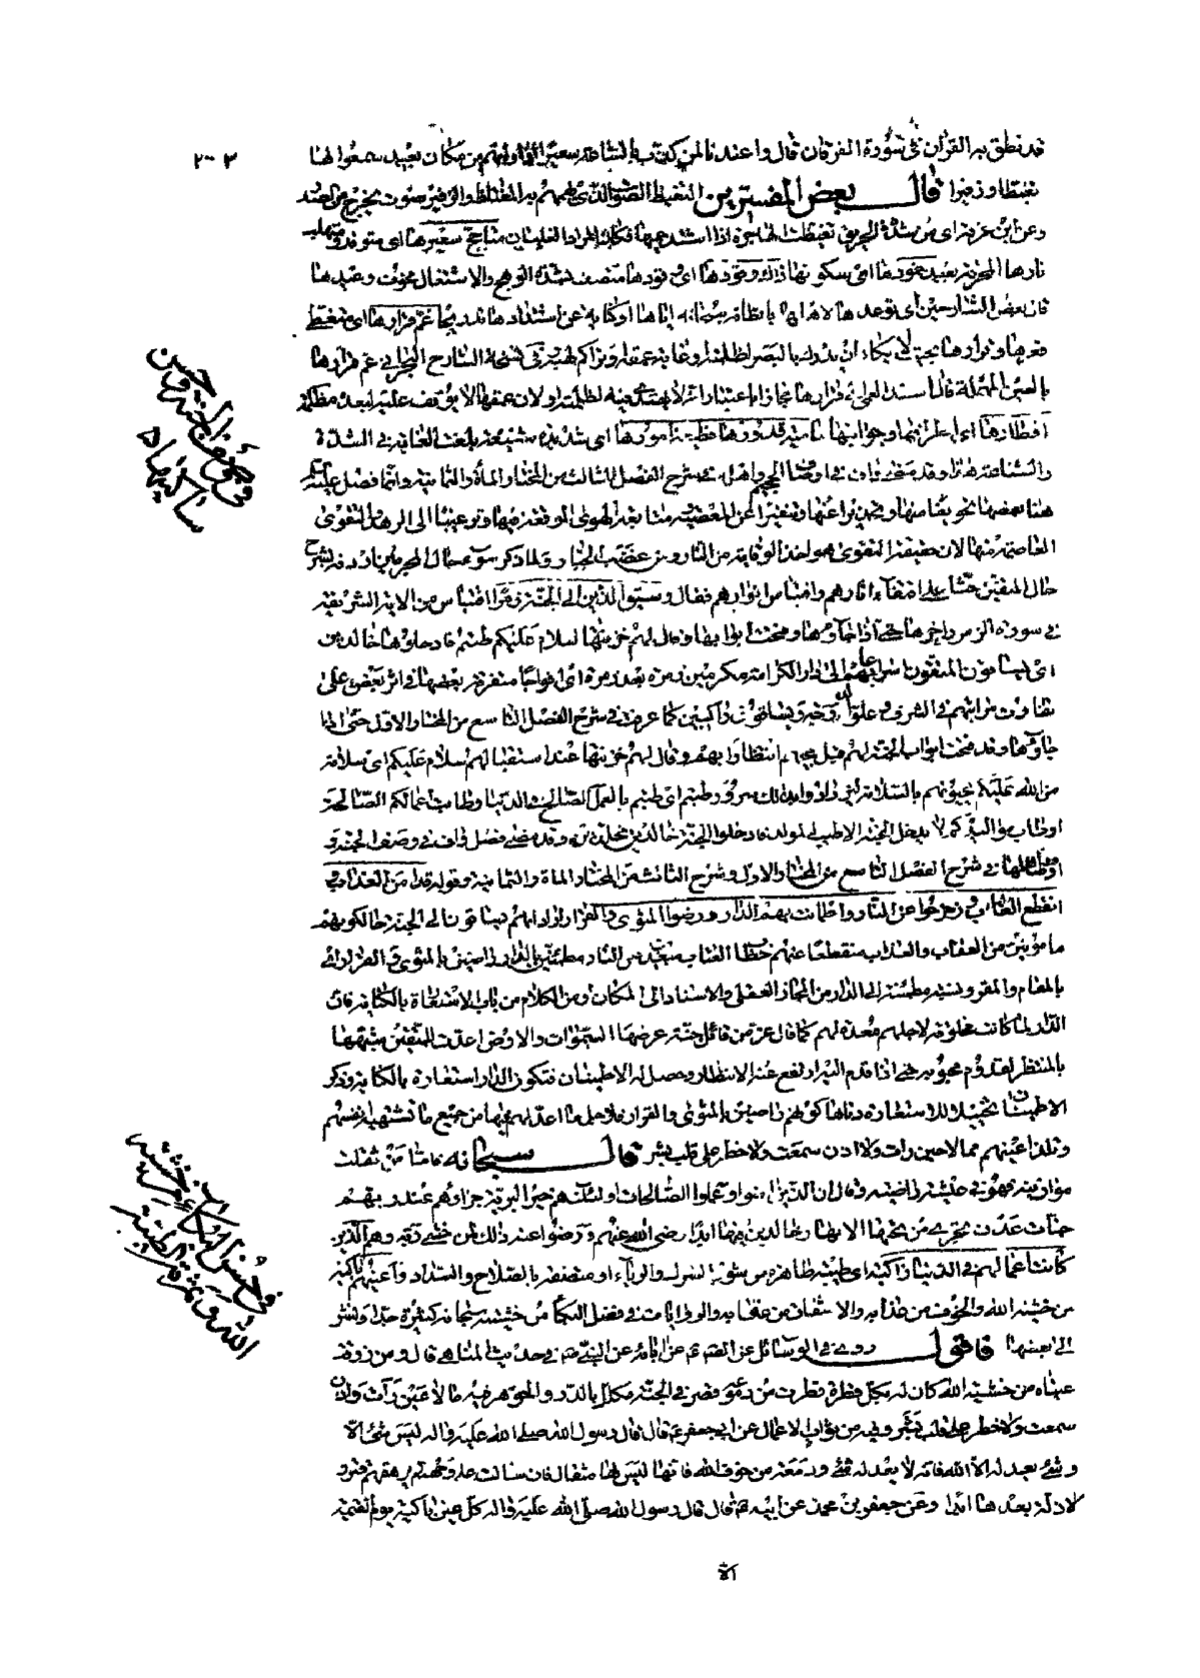 ٢٠٣
قد نطق به القرآن في سورة الفرقان قال واعتدنا لمن كذب بالساعة سعيرا اذا رأتهم من مكان بعيد سمعوا لها
تغيظا وزفيرا قال بعض المفسرين التغيظ الصوت الذي يهمهم به المغتاظ والزفير صوت يخرج من الصدر
وعن ابن عرفة اي من شدة الحريق تغيظت الهاجرة اذا اشتد حميها فكان المراد الغليان متاجج سعيرها اي متوقد
نارها المحرقة بعيد خمودها اي سكونها ذاك وقودها اي وقودها متصف بشدة الوهج والاشتعال مخوف وعيدها
قال بعض الشارحين اي توعدها
قعرها وقرارها بحيث لا يكاد ان يدرك بالبصر لظلمته وغاية عمقه وتراكم لهبه في نسخة الشارح البحراني عم قرارها
بالعين المهملة قال اسند العمى الى قرارها مجازا باعتبار انه لا يهتدى فيه لظلمته او لان عمقها لا يوقف عليه لبعده مظلمة
اقطارها اي اطرافها وجوانبها حامية قدورها فظيعة امورها اي شديدة شنيعة بلغت الغاية في الشدة
والشناعة هذا وقد مضى في اوصاف الجحيم واهلها في شرح الفصل الثالث من المختار المأة والثمانية وانما فصل عليه السلام
هنا بعضها تخويفا منها وتحذيرا عنها وتنفيرا عن المعصية متابعة الهوى الموقعة فيها وترغيبا الى الزهد والتقوى
العاصمة منها لان حقيقة التقوى هو اخذ الوقاية من النار ومن غضب الجبار ولما ذكر سوء حال المجرمين اردفه بشرح
حال المتقين حثا على اقتفاء اثارهم واقتباس انوارهم فقال وسيق الذين الى الجنة زمرا اقتباس من الاية الشريفة
في سورة الزمر واخرها حتى اذا جاؤها وفتحت ابوابها وقال لهم خزنتها سلام عليكم طبتم فادخلوها خالدين
اي يساقون المتقون الى دار الكرامة مكرمين زمرة بعد زمرة اي افواجا متفرقة بعضها في اثر بعض على
تفاوت مراتبهم في الشرف وعلو ويساقون راكبين كما عرفت في شرح الفصل التاسع من المختار الاول حتى اذا
جاؤها وقد فتحت ابواب الجنة لهم قبل مجيئهم انتظارا بهم وقال لهم خزنتها عند استقبالهم سلام عليكم اي سلامة
من الله عليكم يحيونهم بالسلامة ليزدادوا بذلك سرورا طبتم اي طبتم بالعمل الصالح في الدنيا وطابت اعمالكم الصالحة
لا يدخل الجنة الا طيب المولد فادخلوا الجنة خالدين مخلدين وقد مضى فصل واف في وصف الجنة و
اوصافها في شرح الفصل التاسع من المختار الاول وشرح الثالث من المختار الماة والثمانية وقوله قد امن العذاب
انقطع العتاب وزحزحوا عن النار واطمأنت بهم الدار ورضوا المثوى والقرار اراد انهم يساقون الى الجنة حالكونهم
مأمونين من العقاب والعذاب منقطعا عنهم خطاب العتاب مبعدين من النار مطمئنين بالدار راضين بالمثوى والقرار اي
بالمقام والمقر ونسبة مطمئنة الى الدار من المجاز العقلي والاسناد الى المكان او من الكلام من باب الاستعارة بالكناية فان
الدار لما كانت مخلوقة لاجلهم معدة لهم كما قال عز من قائل جنة عرضها السموات والارض اعدت للمتقين شبهها
بالمنتظر لقدوم محبوبه حتى اذا قدم اليه ارتفع عنه الانتظار وحصل له الاطمينان فتكون الدار استعارة بالكناية وذكر
الاطمينان تخييلا للاستعارة واما كونهم راضين بالمثوى والقرار فلاجل ما اعد لهم فيها من جميع ما تشتهيه انفسهم
وتلذ اعينهم مما لا عين رات ولا اذن سمعت ولا خطر على قلب بشر قال سبحانه فاما من ثقلت
موازينه فهو في عيشة راضية وقال ان الذين امنوا وعملوا الصالحات اولئك هم خير البرية جزاؤهم عند ربهم
جنات عدن تجري من تحتها الانهار خالدين فيها ابدا رضي الله عنهم ورضوا عنه ذلك لمن خشي ربه وهم الذين
كانت اعمالهم في الدنيا زاكية اي طيبة طاهرة من شوب الشرك والرياء او متصفة بالصلاح والسداد واعينهم باكية
من خشية الله والخوف من عذابه والاشفاق من عقابه والروايات في فضل البكاء من خشيته سبحانه كثيرة جدا ولنشر
الى بعضها فاقول روى في الوسائل عن الصدوق عن ابائه عن النبي في حديث المناهي قال ومن ذرفت
عيناه من خشية الله كان له بكل قطرة قطرت من دموعه قصر في الجنة مكلل بالدر والجوهر فيه ما لا عين رأت ولا اذن
سمعت ولا خطر على قلب بشر وفيه من ثواب الاعمال عن ابي جعفر ع قال قال رسول الله صلى الله عليه واله ليس شيء الا
وشيء يعدله الا الله فانه لا يعدله شيء ودمعة من خوف الله فانها ليس لها مثقال فان سالت على وجهه لم يرهقه قتر و
لا ذلة بعدها ابدا وعن جعفر بن محمد عن ابيه قال قال رسول الله صلى الله عليه واله كل عين باكية يوم القيمة
الا